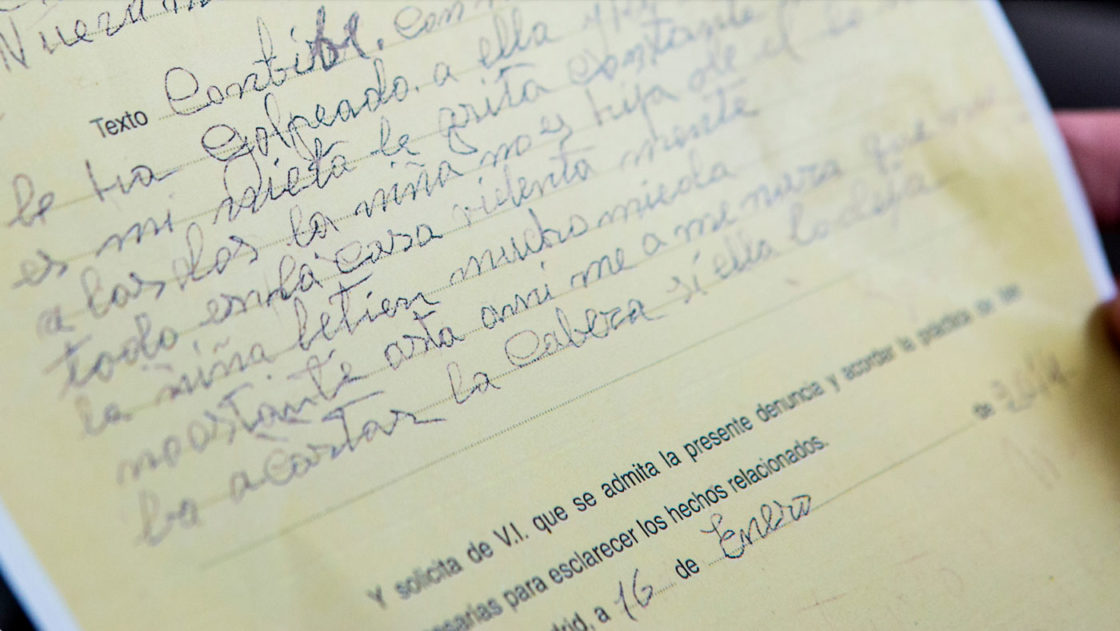 Nuera
Texto
le ha Golpeado. a ella
es mi nieta le grita constante
a las dos la niña no es hija de el
todo en la casa violenta mente
la niña le tien mucho miedo
noostante asta ami me a me nasa que
ba acortar la Cabeza si ella lo deja
Y solicita de V.I. que se admita la presente denuncia y acordar la práctica de las
esarias para esclarecer los hechos relacionados.
drid, a 16 de Enero de 2014